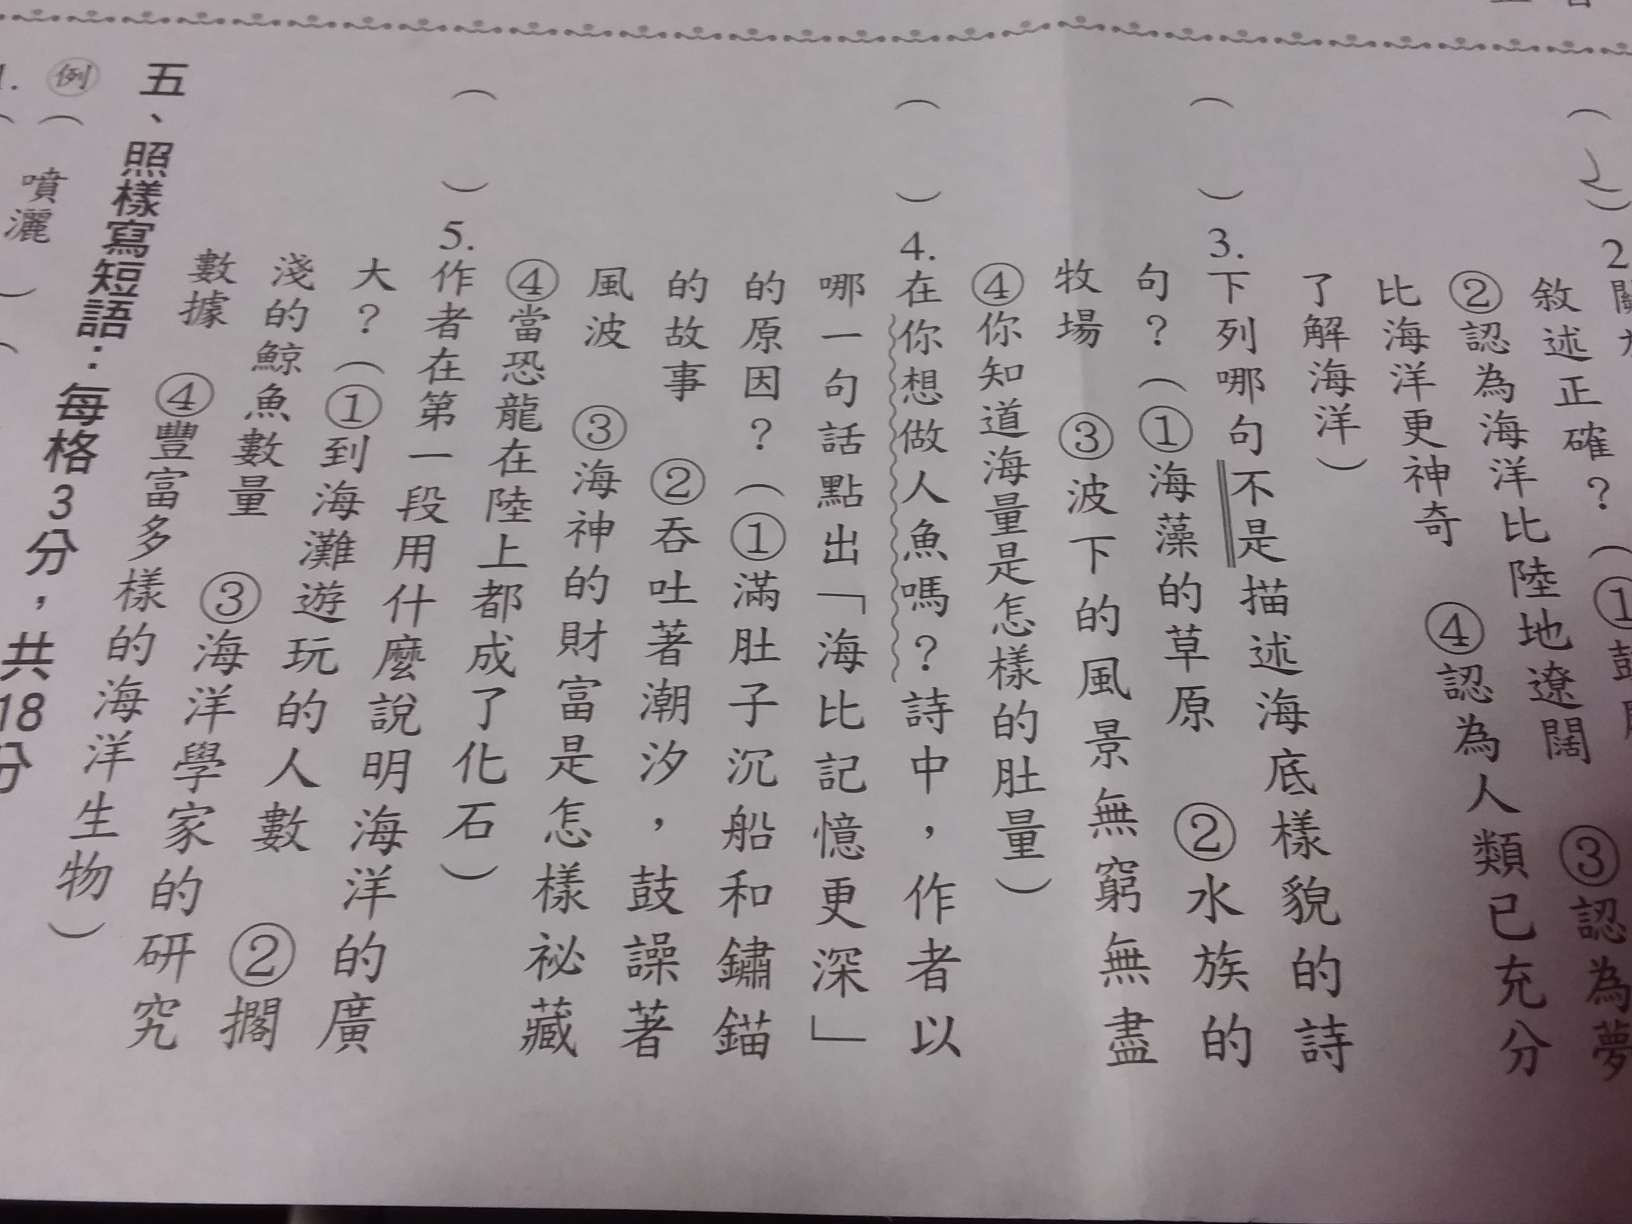 敘述正確？（①
②認為海洋比陸地遼闊　③認為夢
比海洋更神奇　④認為人類已充分
了解海洋）
（　）3.下列哪句不是描述海底樣貌的詩
句？（①海藻的草原　②水族的
牧場　③波下的風景無窮無盡
④你知道海量是怎樣的肚量）
（　）4.在你想做人魚嗎？詩中，作者以
哪一句話點出「海比記憶更深」
的原因？（①滿肚子沉船和鏽錨
的故事　②吞吐著潮汐，鼓譟著
風波　③海神的財富是怎樣祕藏
④當恐龍在陸上都成了化石）
（　）5.作者在第一段用什麼說明海洋的廣
大？（①到海灘遊玩的人數　②擱
淺的鯨魚數量　③海洋學家的研究
數據　④豐富多樣的海洋生物）
五、照樣寫短語：每格3分，共18分
例（噴灑）（
1.（